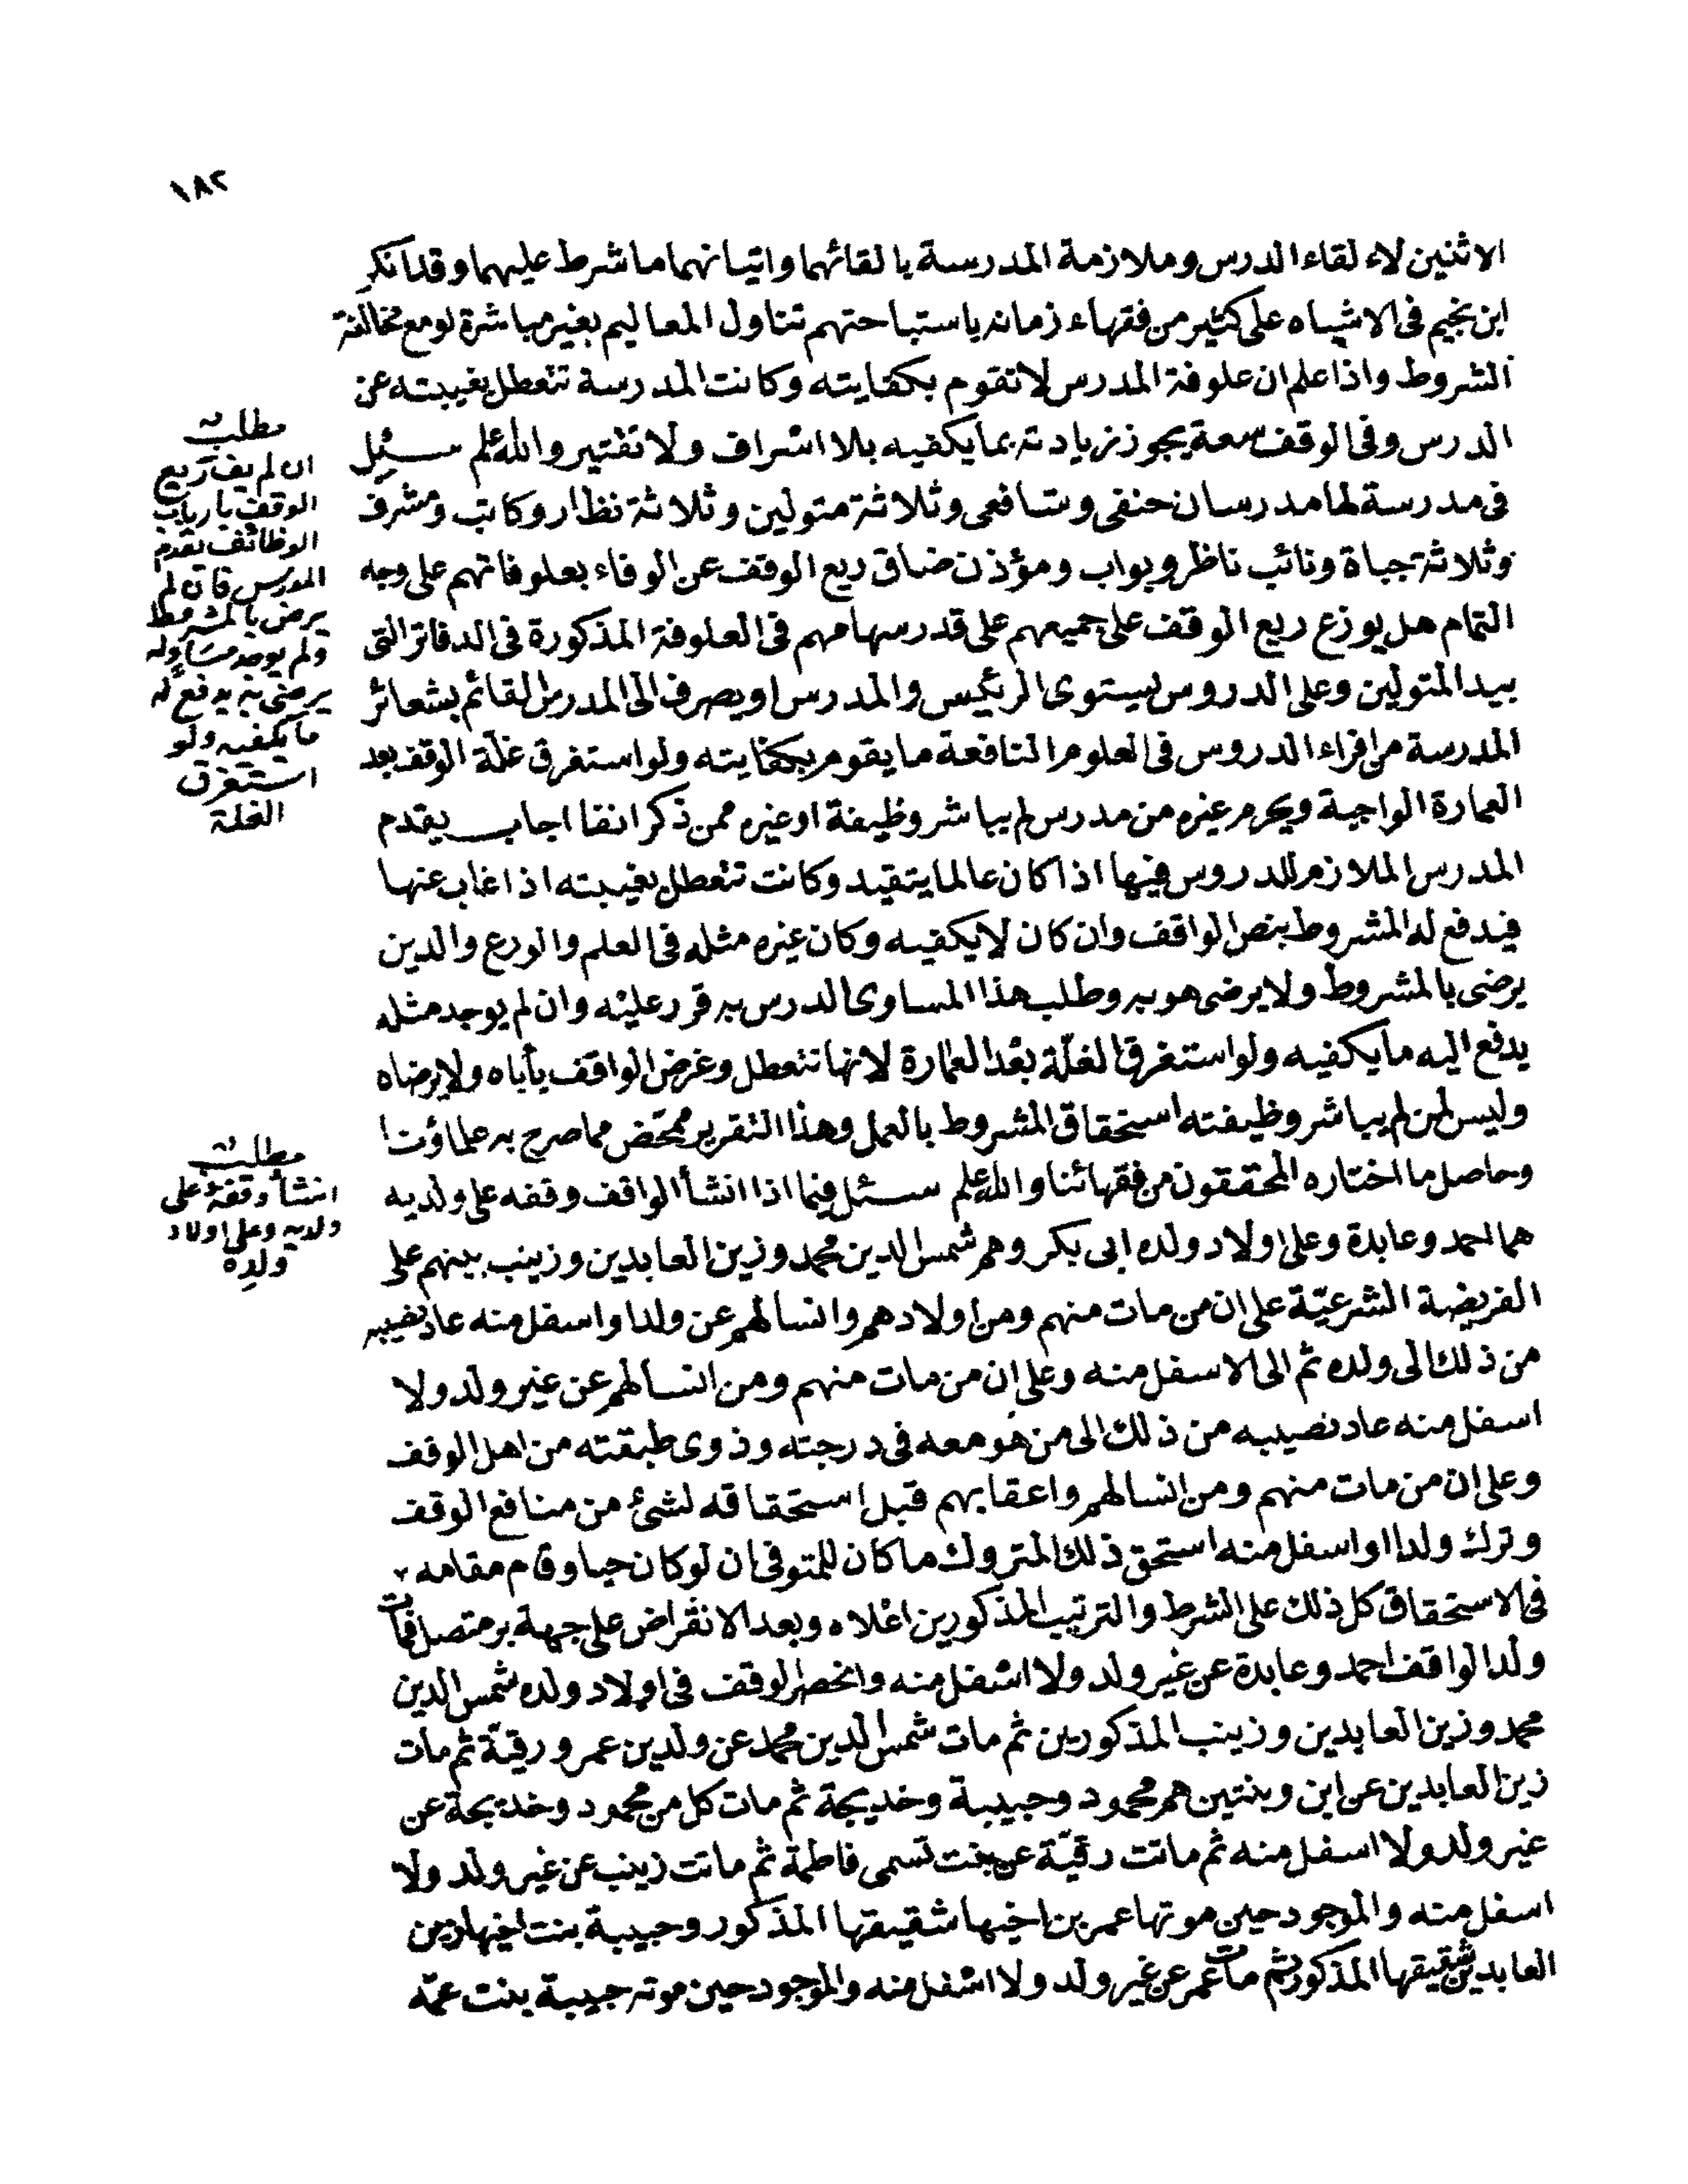 ١٨٢
الاثنين لالقاء الدرس وملازمة المدرسة بالقائهما واتيانهما ما شرط عليهما وقد انكر
ابن نجيم فى الاشباه على كثير من فقهاء زمانه باستباحتهم تناول المعاليم بغير مباشرة لو مع مخالفة
الشروط واذا علم ان علوفة المدرس لا تقوم بكفايته وكانت المدرسة تتعطل بغيبته عن
الدرس وفى الوقف سعة يجوز زيادته بما يكفيه بلا اسراف ولا تقتير والله اعلم سئل
فى مدرسة لها مدرسان حنفى وشافعى وثلاثة متولين وثلاثة نظار وكاتب ومشرف
وثلاثة جباة ونائب ناظر وبواب ومؤذن ضاق ريع الوقف عن الوفاء بعلوفاتهم على وجه
التمام هل يوزع ريع الوقف على جميعهم على قدر سهامهم فى العلوفة المذكورة فى الدفاتر التى
بيد المتولين وعلى الدروس ليستوى الرئيس والمدرس او يصرف الى المدرس القائم بشعائر
المدرسة من اقراء الدروس فى العلوم النافعة ما يقوم بكفايته ولو استغرق غلة الوقف بعد
العمارة الواجبة ويحرم غيره من مدرس لم يباشر وظيفة او غيره ممن ذكر انفا اجاب يقدم
المدرس الملازم للدروس فيها اذا كان عالما يتقيد وكانت تتعطل بغيبته اذا غاب عنها
فيدفع له المشروط بنص الواقف وان كان لا يكفيه وكان غيره مثله فى العلم والورع والدين
يرضى بالمشروط ولا يرضى هو به وطلب هذا المساوى الدرس به قرر عليه وان لم يوجد مثله
يدفع اليه ما يكفيه ولو استغرق الغلة بعد العمارة لانها تتعطل وغرض الواقف يأباه ولا يرضاه
وليس لمن لم يباشر وظيفته استحقاق المشروط بالعمل وهذا التقرير ممحّض مما صرح به علماؤنا
وحاصل ما اختاره المحققون من فقهائنا والله اعلم سئل فيما اذا انشأ الواقف وقفه على ولديه
هما احمد وعابدة وعلى اولاد ولده ابى بكر وهم شمس الدين محمد وزين العابدين وزينب بينهم على
الفريضة الشرعيّة على ان من مات منهم ومن اولادهم وانسالهم عن ولد او اسفل منه عاد نصيبه
من ذلك الى ولده ثم الى الاسفل منه وعلى ان من مات منهم ومن انسالهم عن غير ولد ولا
اسفل منه عاد نصيبه من ذلك الى من هو معه فى درجته وذوى طبقته من اهل الوقف
وعلى ان من مات منهم ومن انسالهم واعقابهم قبل استحقاقه لشئ من منافع الوقف
وترك ولدا او اسفل منه استحق ذلك المتروك ما كان للمتوفى ان لو كان حيا وقام مقامه
فى الاستحقاق كل ذلك على الشرط والترتيب المذكورين اعلاه وبعد الانقراض على جهة بر متصل فمات
ولدا الواقف احمد وعابدة عن غير ولد ولا اسفل منه وانحصر الوقف فى اولاد ولده شمس الدين
محمد وزين العابدين وزينب المذكورين ثم مات شمس الدين محمد عن ولدين عمر ورقيّة ثم مات
زين العابدين عن ابن وبنتين هم محمود وحبيبة وخديجة ثم مات كل من محمود وخديجة عن
غير ولد ولا اسفل منه ثم ماتت رقيّة عن بنت تسمى فاطمة ثم ماتت زينب عن غير ولد ولا
اسفل منه والموجود حين موتها عمر بن اخيها شقيقها المذكور وحبيبة بنت اخيها زين
العابدين شقيقها المذكور ثم مات عمر عن غير ولد ولا اسفل منه والموجود حين موته حبيبة بنت عمّه
مطلب
ان لم يف ريع
الوقف بارباب
الوظائف يقدم
المدرس فان لم
يرض بالمشروط
ولم يوجد مساو له
يرضى به يدفع له
ما يكفيه ولو
استغرق
الغلة
مطلب
انشأ وقفه على
ولديه وعلى اولاد
ولده